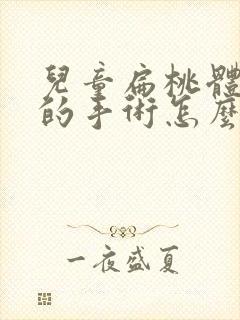 兒童扁桃體
的手術怎麼
一夜盛夏